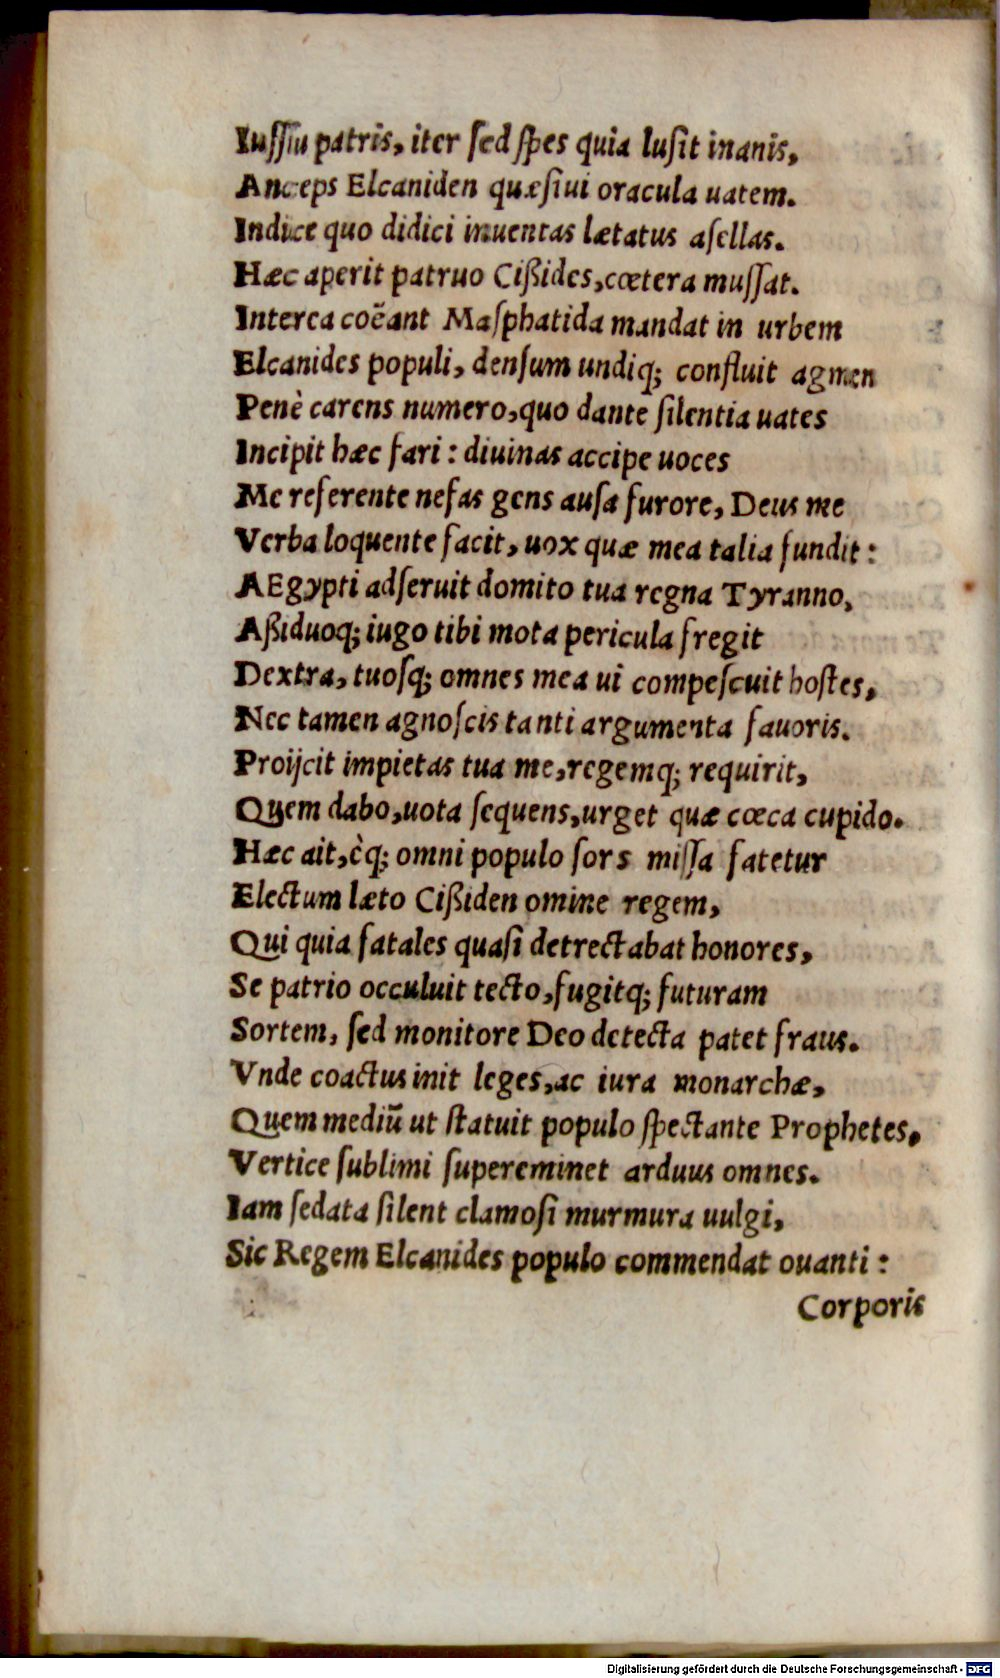 Iuſſu patris, iter ſed ſpes quia luſit inanis,
Anceps Elcaniden quæſiui oracula uatem.
Indice quo didici inuentas lætatus aſellas.
Hæc aperit patruo Cißides, cœtera muſſat.
Interea coẽant Maſphatida mandat in urbem
Elcanides populi, denſum undiq; confluit agmen
Penè carens numero, quo dante ſilentia uates
Incipit hæc fari: diuinas accipe uoces
Me referente nefas gens auſa furore, Deus me
Verba loquente facit, uox quæ mea talia fundit:
AEgypti adſeruit domito tua regna Tyranno,
Aßiduoq; iugo tibi mota pericula fregit
Dextra, tuoſq; omnes mea ui compeſcuit hoſtes,
Nec tamen agnoſcis tanti argumenta fauoris.
Proijcit impietas tua me, regemq; requirit,
Quem dabo, uota ſequens, urget quæ cœca cupido.
Hæc ait, èq; omni populo ſors miſſa fatetur
Electum læto Cißiden omine regem,
Qui quia fatales quaſi detrectabat honores,
Se patrio occuluit tecto, fugitq; futuram
Sortem, ſed monitore Deo detecta patet fraus.
Vnde coactus init leges, ac iura monarchæ,
Quem mediũ ut ſtatuit populo ſpectante Prophetes,
Vertice ſublimi ſupereminet arduus omnes.
Iam ſedata ſilent clamoſi murmura uulgi,
Sic Regem Elcanides populo commendat ouanti:
Corporis
Digitalisierung gefördert durch die Deutsche Forschungsgemeinschaft - DFG